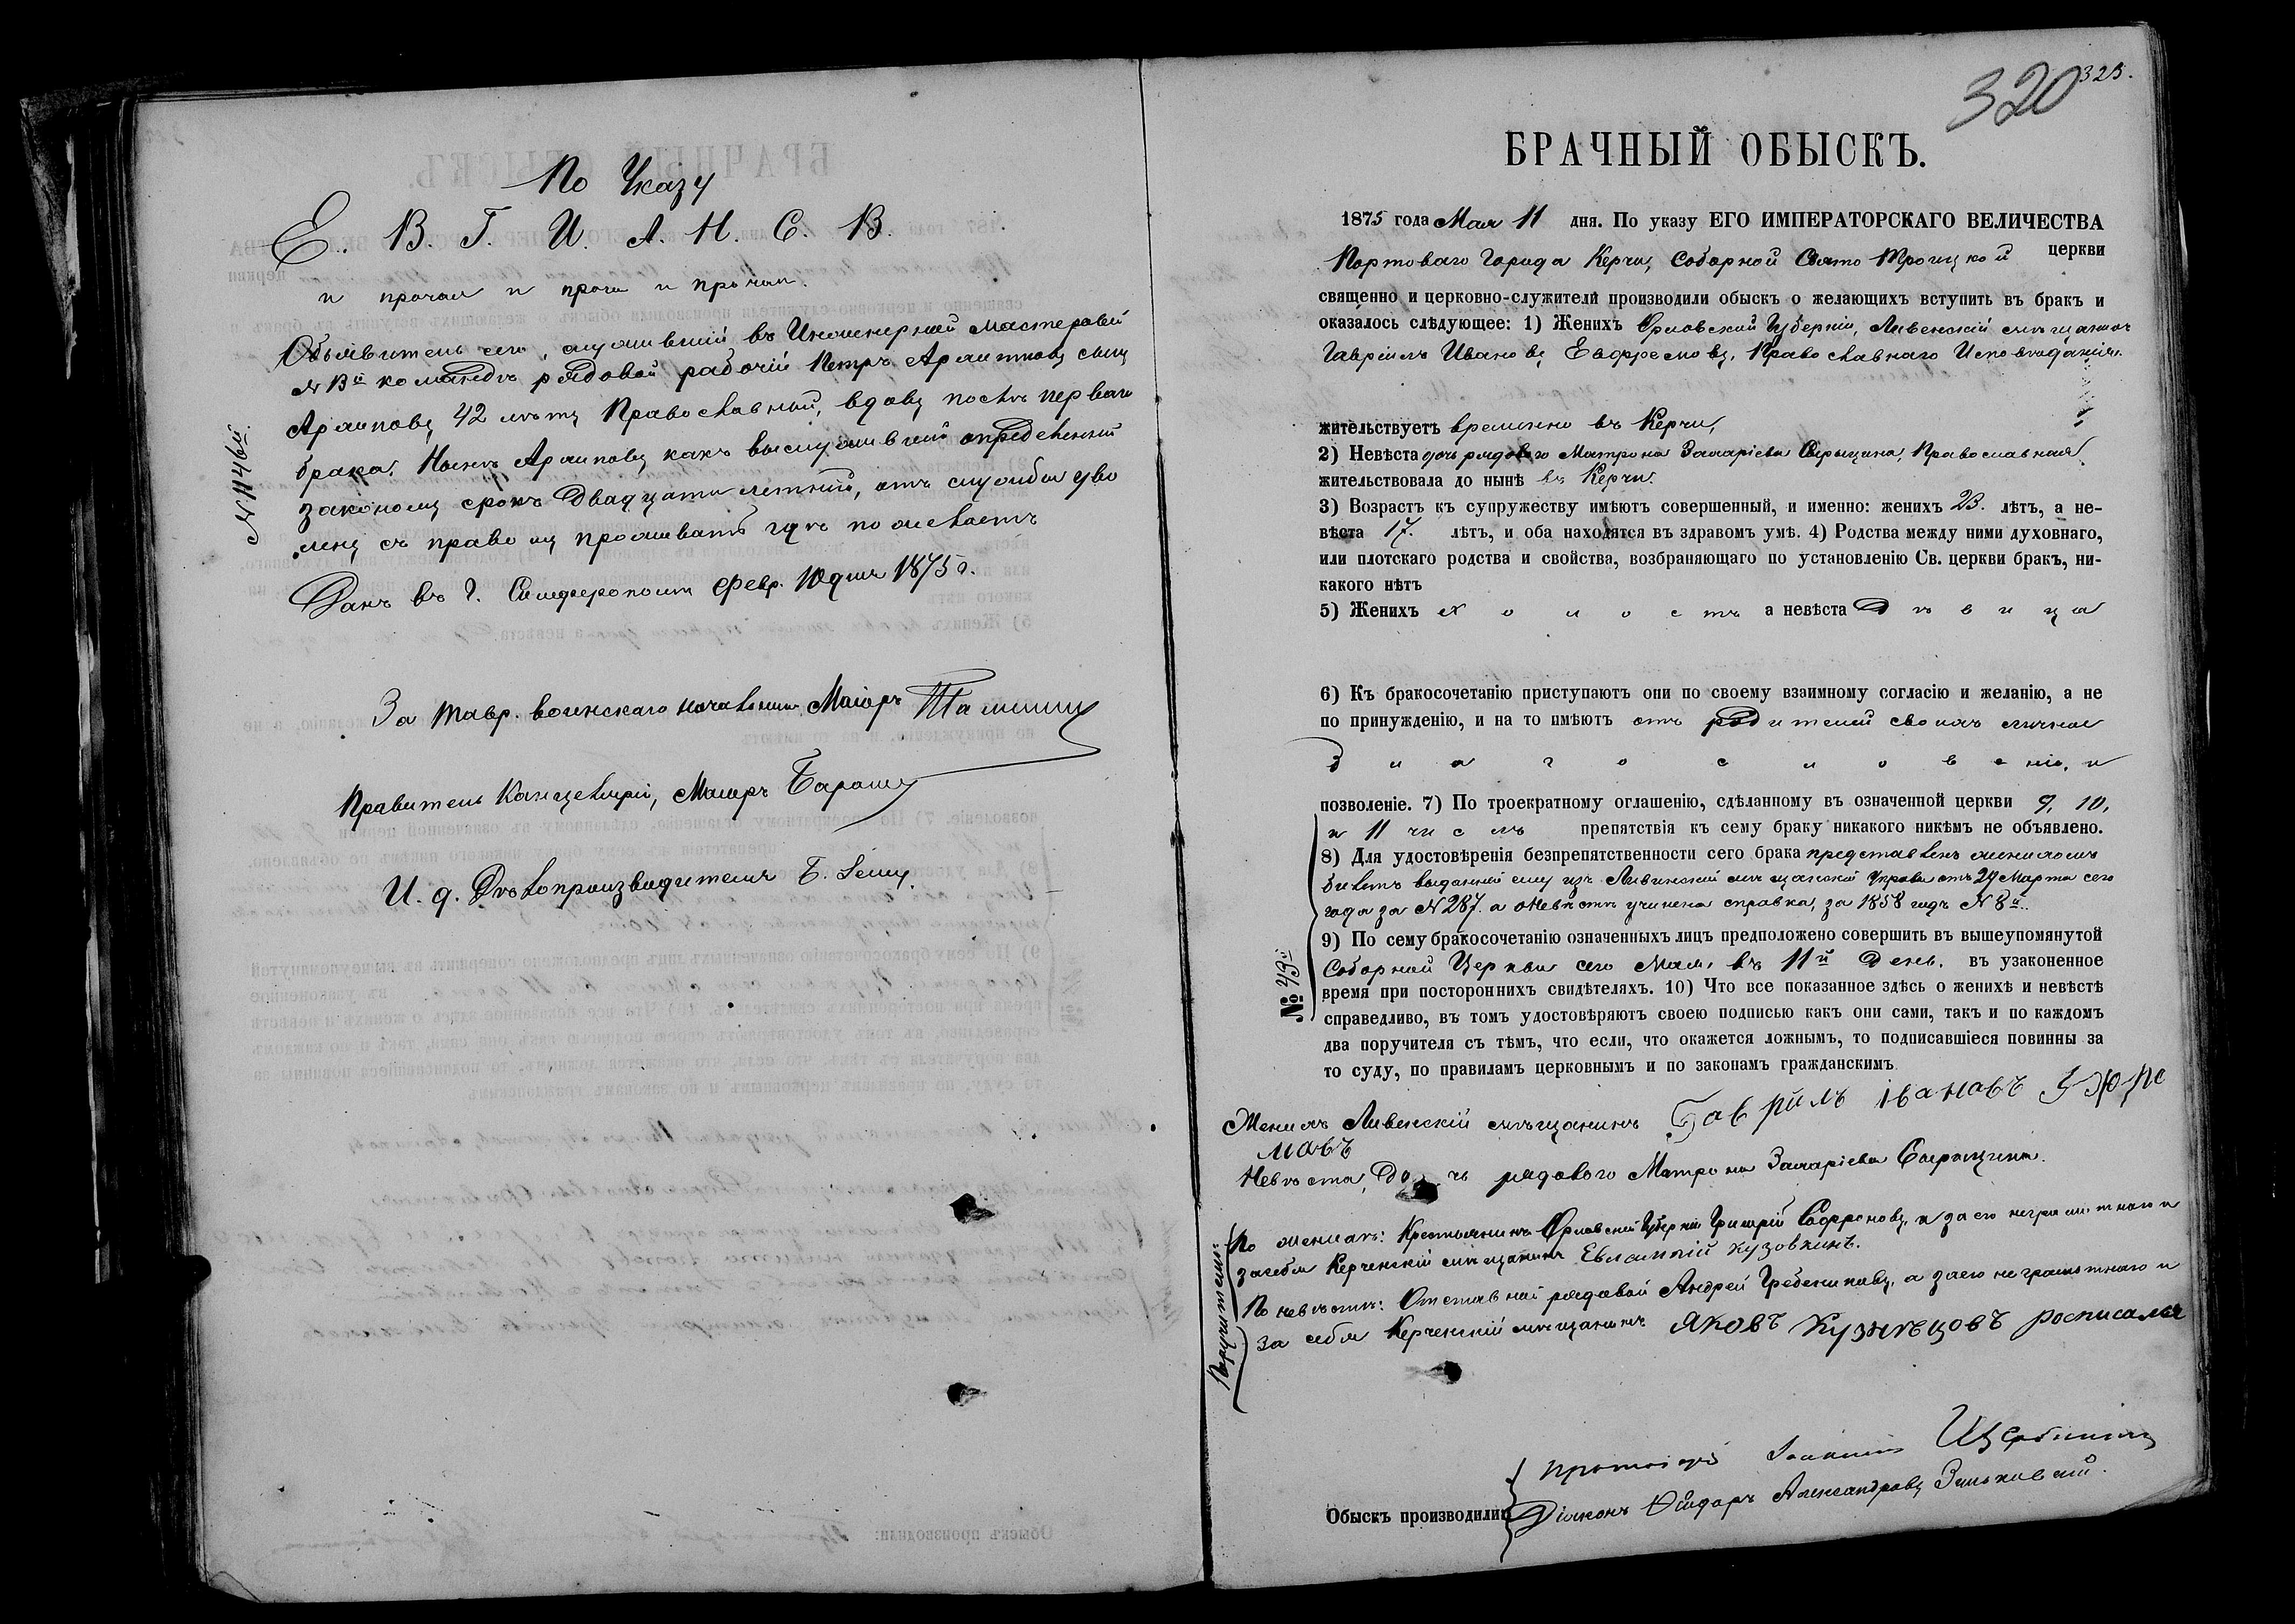 По Указу
Е. В. Г. И. А. Н. С. В.
и прочая и проча и прочая.
Объявитель сего, служившій въ Инженерной Мастеровой
№ 3й командѣ рядовой рабочій Петръ Архиповъ сынъ
Архиповъ, 42 лѣтъ Православный, вдовъ послѣ перваго
брака. Нынѣ Архиповъ какъ выслужившій опредѣленный
закономъ срокъ Двадцати лѣтній, отъ службы уво
ленъ съ правомъ проживать гдѣ пожелаетъ
Данъ въ г. Симферополи Февр. 10 дня 1875 г.
№ 1146й.
За Тавр. воинскаго начальника Маіоръ
Правитель Канцеляріи, Маіоръ
И. д. Дѣлопроизводителя
320
325.
БРАЧНЫЙ ОБЫСКЪ.
1875 года Мая 11 дня. По указу ЕГО ИМПЕРАТОРСКАГО ВЕЛИЧЕСТВА
Портоваго Города Керчи, Соборной Свято Троицкой церкви
священно и церковно-служители производили обыскъ о желающихъ вступить въ бракъ и
оказалось слѣдующее: 1) Женихъ Орловской Губерніи, Ливенскій мѣщанинъ
Гавріилъ Ивановъ Евфремовъ, Православнаго Исповѣданія.
жительствуетъ временно въ Керчи,
2) Невѣста дочь рядового Матрона Захаріева Сырыцина, Православная
жительствовала до нынѣ въ Керчи.
3) Возрастъ къ супружеству имѣютъ совершенный, и именно: женихъ 23. лѣтъ, а не-
вѣста 17. лѣтъ, и оба находятся въ здравомъ умѣ. 4) Родства между ними духовнаго,
или плотскаго родства и свойства, возбраняющаго по установленію Св. церкви бракъ, ни-
какого нѣтъ
5) Женихъ холостъ а невѣста Дѣвица
6) Къ бракосочетанію приступаютъ они по своему взаимному согласію и желанію, а не
по принужденію, и на то имѣютъ отъ родителей своихъ личное
благословеніе, и
позволеніе. 7) По троекратному оглашенію, сдѣланному въ означенной церкви 9, 10,
и 11 числъ препятствія къ сему браку никакого никѣмъ не объявлено.
8) Для удостовѣренія безпрепятственности сего брака представленъ женихомъ
билетъ выданный ему изъ Ливинской мѣщанской Управы отъ 29 Марта сего
года за № 287. а о невѣстѣ учинена справка, за 1858 годъ № 8й.
9) По сему бракосочетанію означенныхъ лицъ предположено совершить въ вышеупомянутой
Соборной Церкви сего Мая, въ 11й День. въ узаконенное
время при постороннихъ свидѣтеляхъ. 10) Что все показанное здѣсь о женихѣ и невѣстѣ
справедливо, въ томъ удостовѣряютъ своею подписью какъ они сами, такъ и по каждомъ
два поручителя съ тѣмъ, что если, что окажется ложнымъ, то подписавшіеся повинны за
то суду, по правиламъ церковнымъ и по законамъ гражданскимъ
№ 43й
Женихъ Ливенскій мѣщанинъ Гаврилъ Івановъ
мавъ
Невѣста, Дочь рядового Матрона Захаріева Сырыцина.
Поручители:
По женихѣ: Крестьянинъ Орловской Губерніи Григорій Софроновъ, а за его неграмотнаго и
за себя Керченскій мѣщанинъ Евлампій Кузовкинъ.
По невѣстѣ: Отставной рядовой Андрей Гребениковъ, а за его неграмотнаго и
за себя Керченскій мѣщанинъ Яковъ Кузнѣцовъ росписался
Обыскъ производили
протоіерей Іоаннъ
Діаконъ Ѳеодоръ Александровъ Зинькевскій.